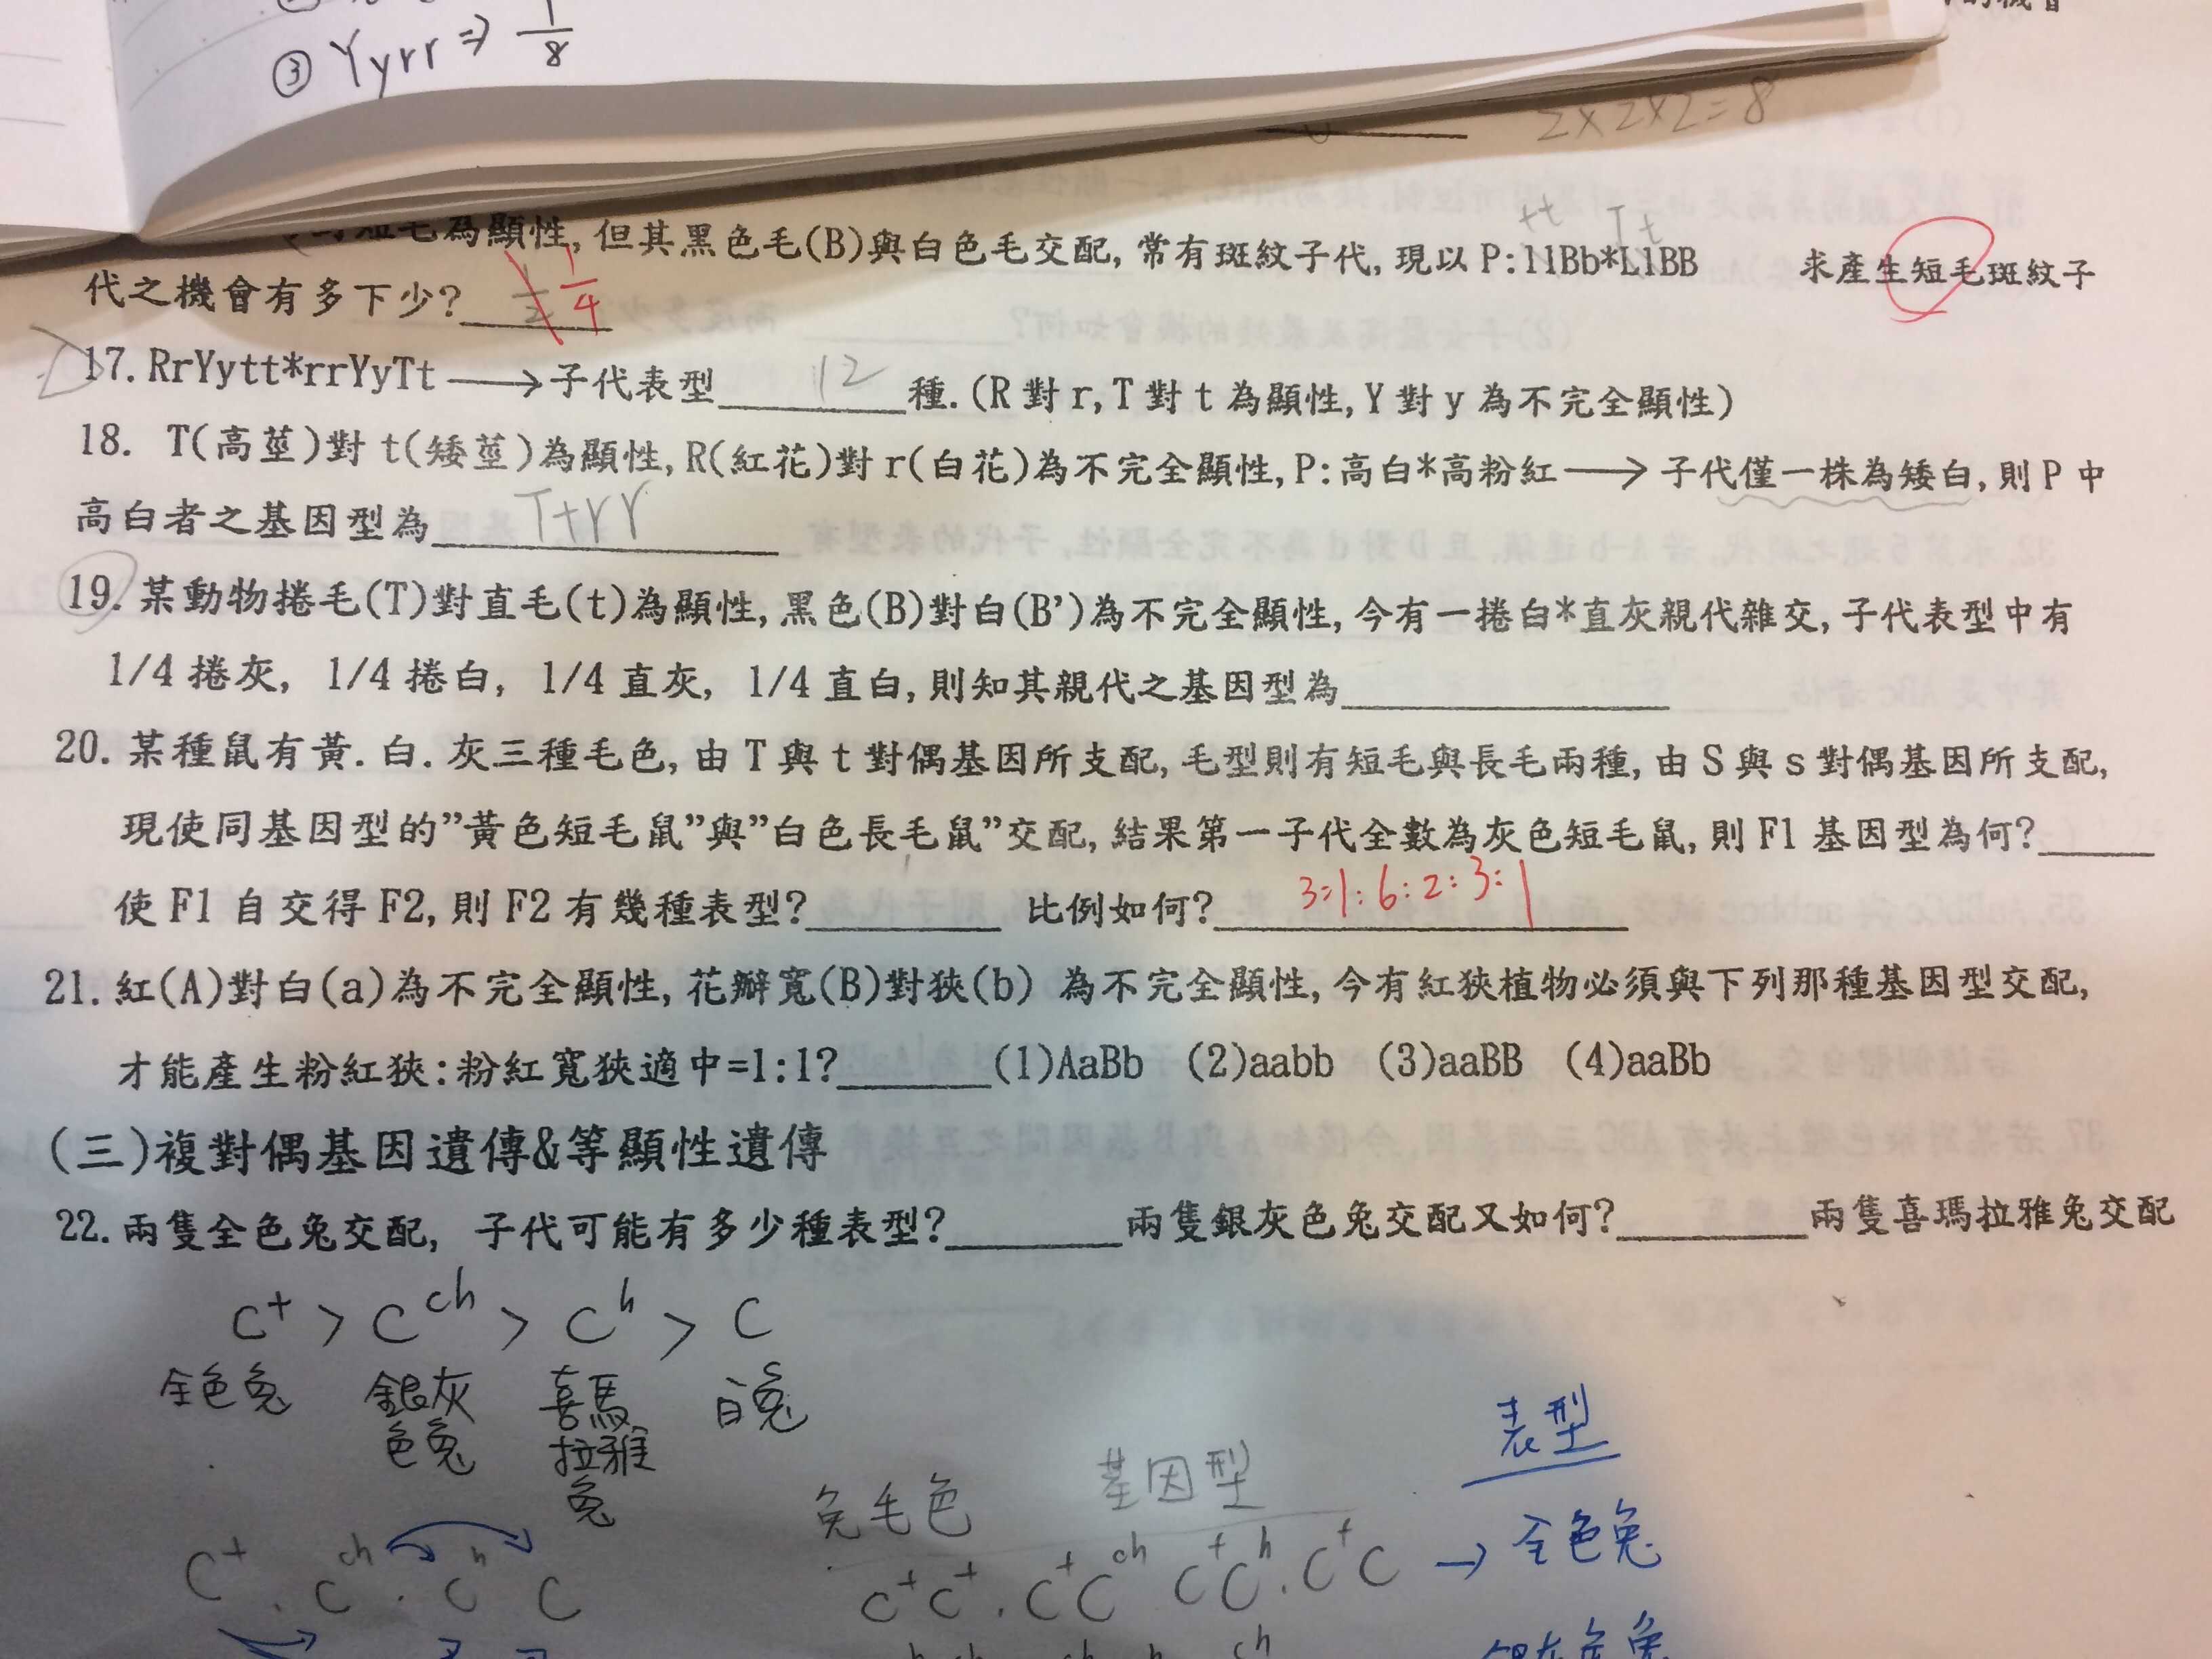 ③ Yyrr ⇒ 1/8
2×2×2=8
tt Tt
短毛為顯性, 但其黑色毛(B)與白色毛交配, 常有斑紋子代, 現以 P:llBb*LlBB 求產生短毛斑紋子
代之機會有多下少? 1/2 1/4
17. RrYytt*rrYyTt ⟶ 子代表型 12 種. (R 對 r, T 對 t 為顯性, Y 對 y 為不完全顯性)
18. T(高莖)對 t(矮莖)為顯性, R(紅花)對 r(白花)為不完全顯性, P:高白*高粉紅 ⟶ 子代僅一株為矮白, 則 P 中
高白者之基因型為 Ttrr
19. 某動物捲毛(T)對直毛(t)為顯性, 黑色(B)對白(B')為不完全顯性, 今有一捲白*直灰親代雜交, 子代表型中有
1/4 捲灰, 1/4 捲白, 1/4 直灰, 1/4 直白, 則知其親代之基因型為
20. 某種鼠有黃. 白. 灰三種毛色, 由 T 與 t 對偶基因所支配, 毛型則有短毛與長毛兩種, 由 S 與 s 對偶基因所支配,
現使同基因型的"黃色短毛鼠"與"白色長毛鼠"交配, 結果第一子代全數為灰色短毛鼠, 則 F1 基因型為何?
使 F1 自交得 F2, 則 F2 有幾種表型? 比例如何? 3:1:6:2:3:1
21. 紅(A)對白(a)為不完全顯性, 花瓣寬(B)對狹(b) 為不完全顯性, 今有紅狹植物必須與下列那種基因型交配,
才能產生粉紅狹:粉紅寬狹適中=1:1? (1)AaBb (2)aabb (3)aaBB (4)aaBb
(三)複對偶基因遺傳&等顯性遺傳
22. 兩隻全色兔交配, 子代可能有多少種表型? 兩隻銀灰色兔交配又如何? 兩隻喜瑪拉雅兔交配
C⁺ > C^ch > C^h > C
全色兔 銀灰色兔 喜馬拉雅兔 白兔
表型
兔毛色 基因型
C⁺ . C^ch . C^h C
C⁺C⁺ . C⁺C^ch C⁺C^h . C⁺C → 全色兔